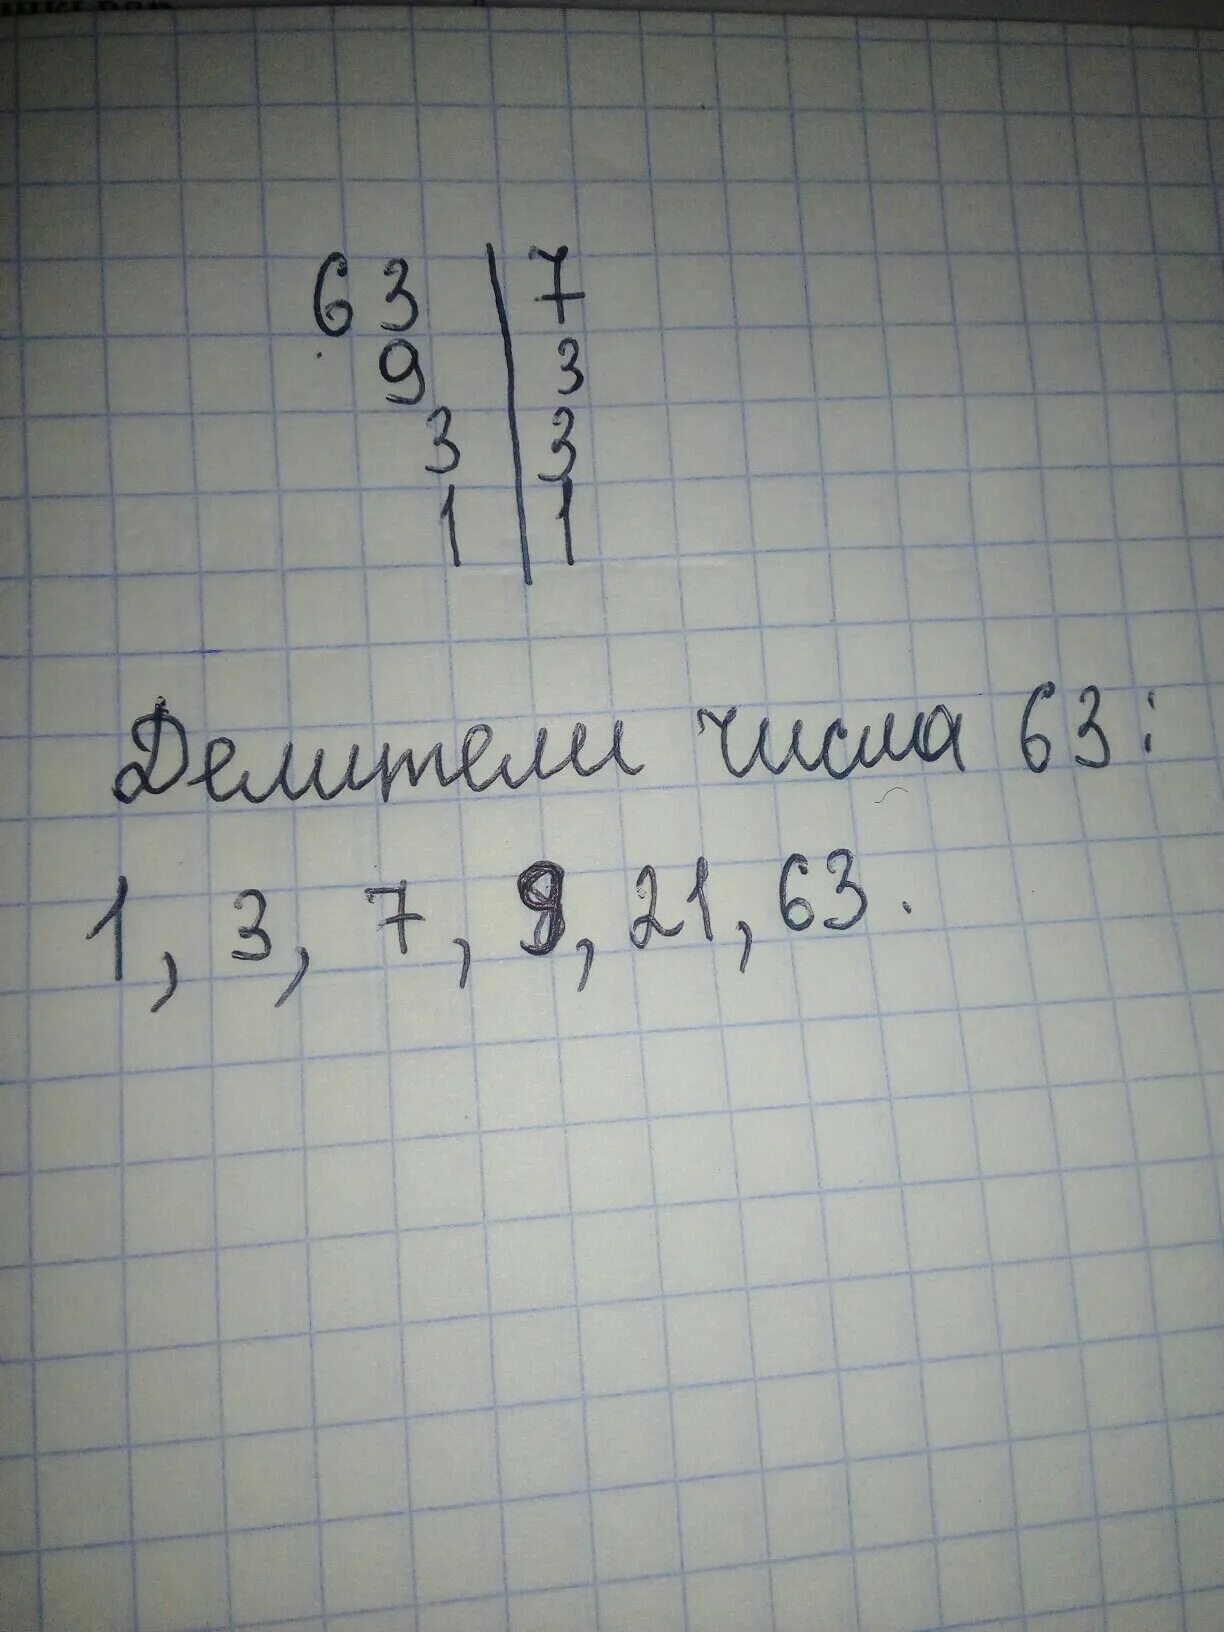 63 | 7
9 | 3
3 | 3
1 | 1
Делители числа 63:
1, 3, 7, 9, 21, 63.